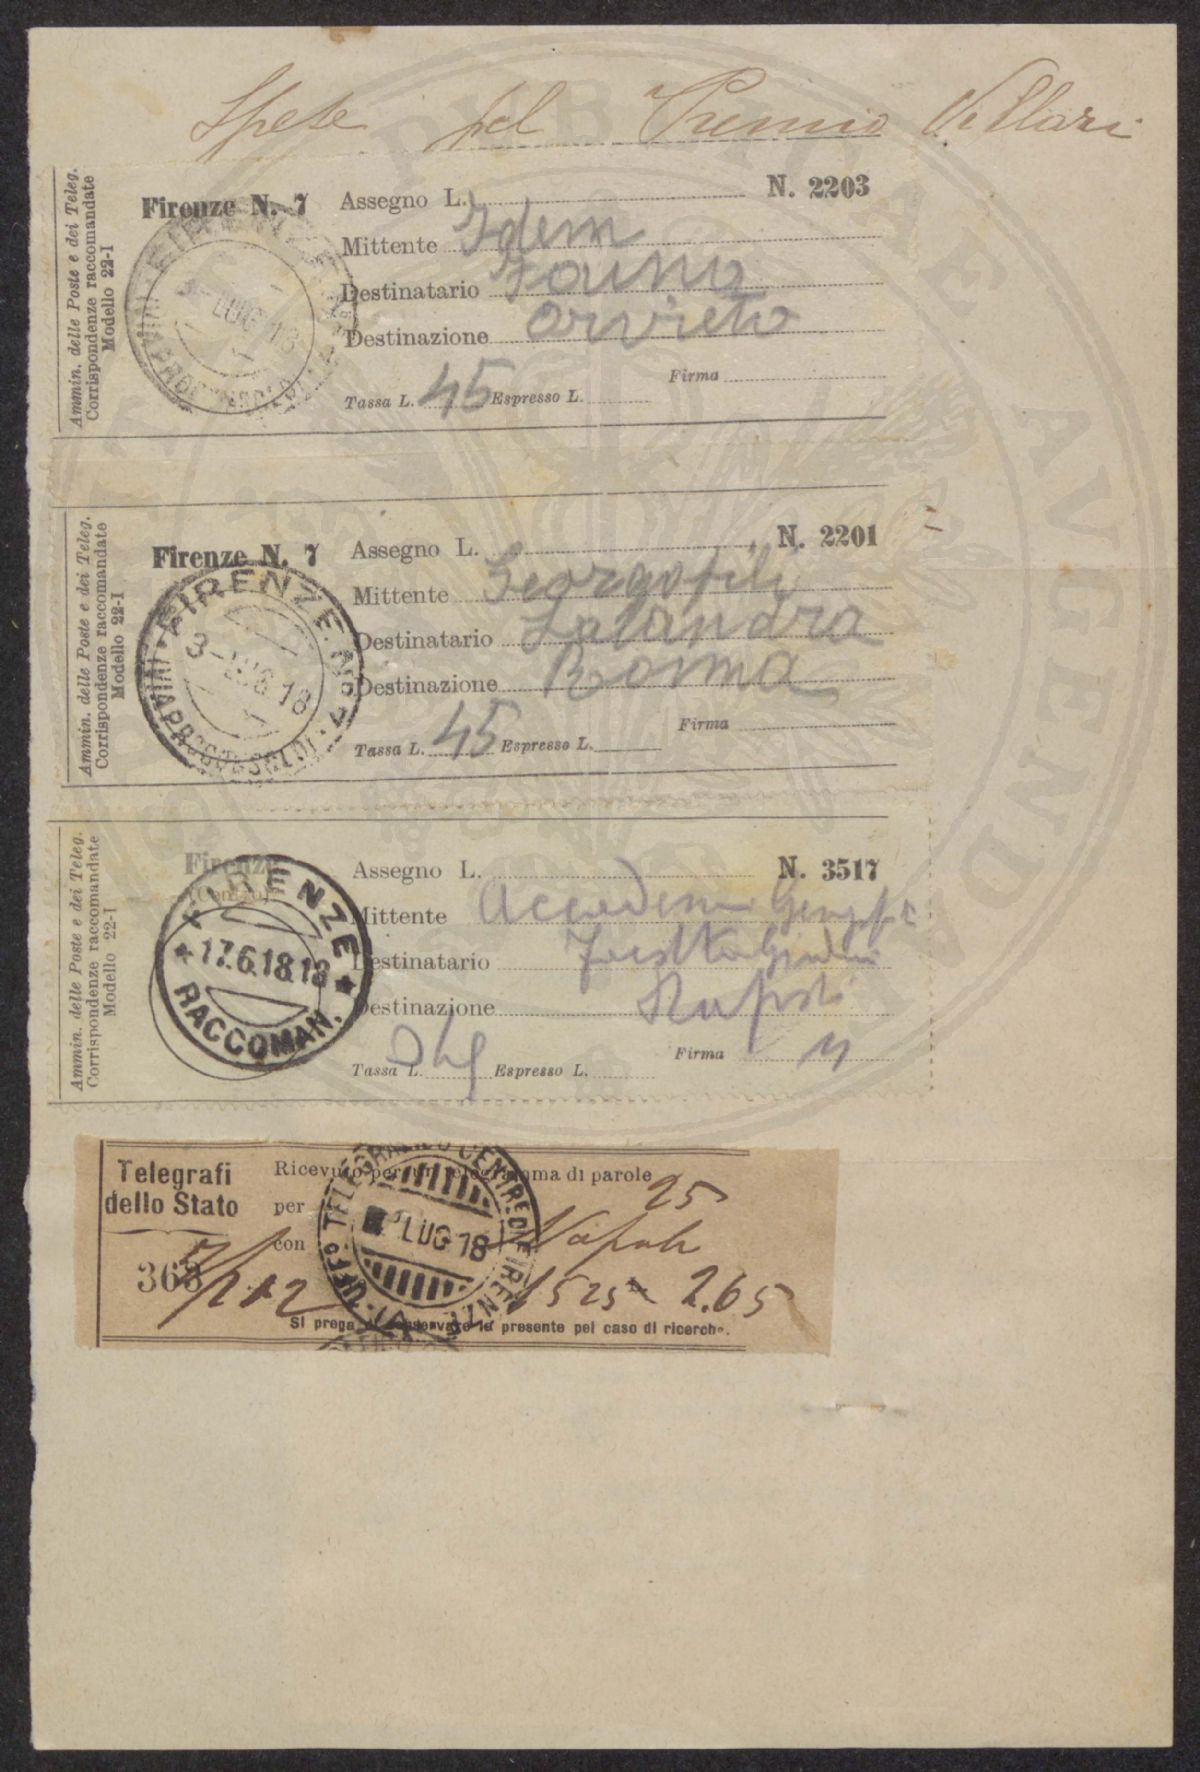 Spese pel Premio Villari
Ammin. delle Poste e dei Teleg.
Corrispondenze raccomandate
Modello 22-I
Firenze N. 7
Assegno L. N. 2203
Mittente Idem
Destinatario Faina
Destinazione Orvieto
Firma
Tassa L. 45 Espresso L.
3 - LUG 18
Ammin. delle Poste e dei Teleg.
Corrispondenze raccomandate
Modello 22-I
Firenze N. 7
Assegno L. N. 2201
Mittente Georgofili
Destinatario Zalandra
Destinazione Roma
Firma
Tassa L. 45 Espresso L.
FIRENZE N. 7
3 - LUG 18
Ammin. delle Poste e dei Teleg.
Corrispondenze raccomandate
Modello 22-I
Firenze
(Centro)
Assegno L. N. 3517
Mittente Accademia
Destinatario
Destinazione Napoli
Firma
Tassa L. Espresso L.
FIRENZE
17.6.18.18
RACCOMAN.
Telegrafi
dello Stato
Ricevuto per un telegramma di parole 25
per Napoli
con
368
212 1525 2.65
Si prega di conservare la presente pel caso di ricerche.
LUG 18
PUBLICAE AVGENDA